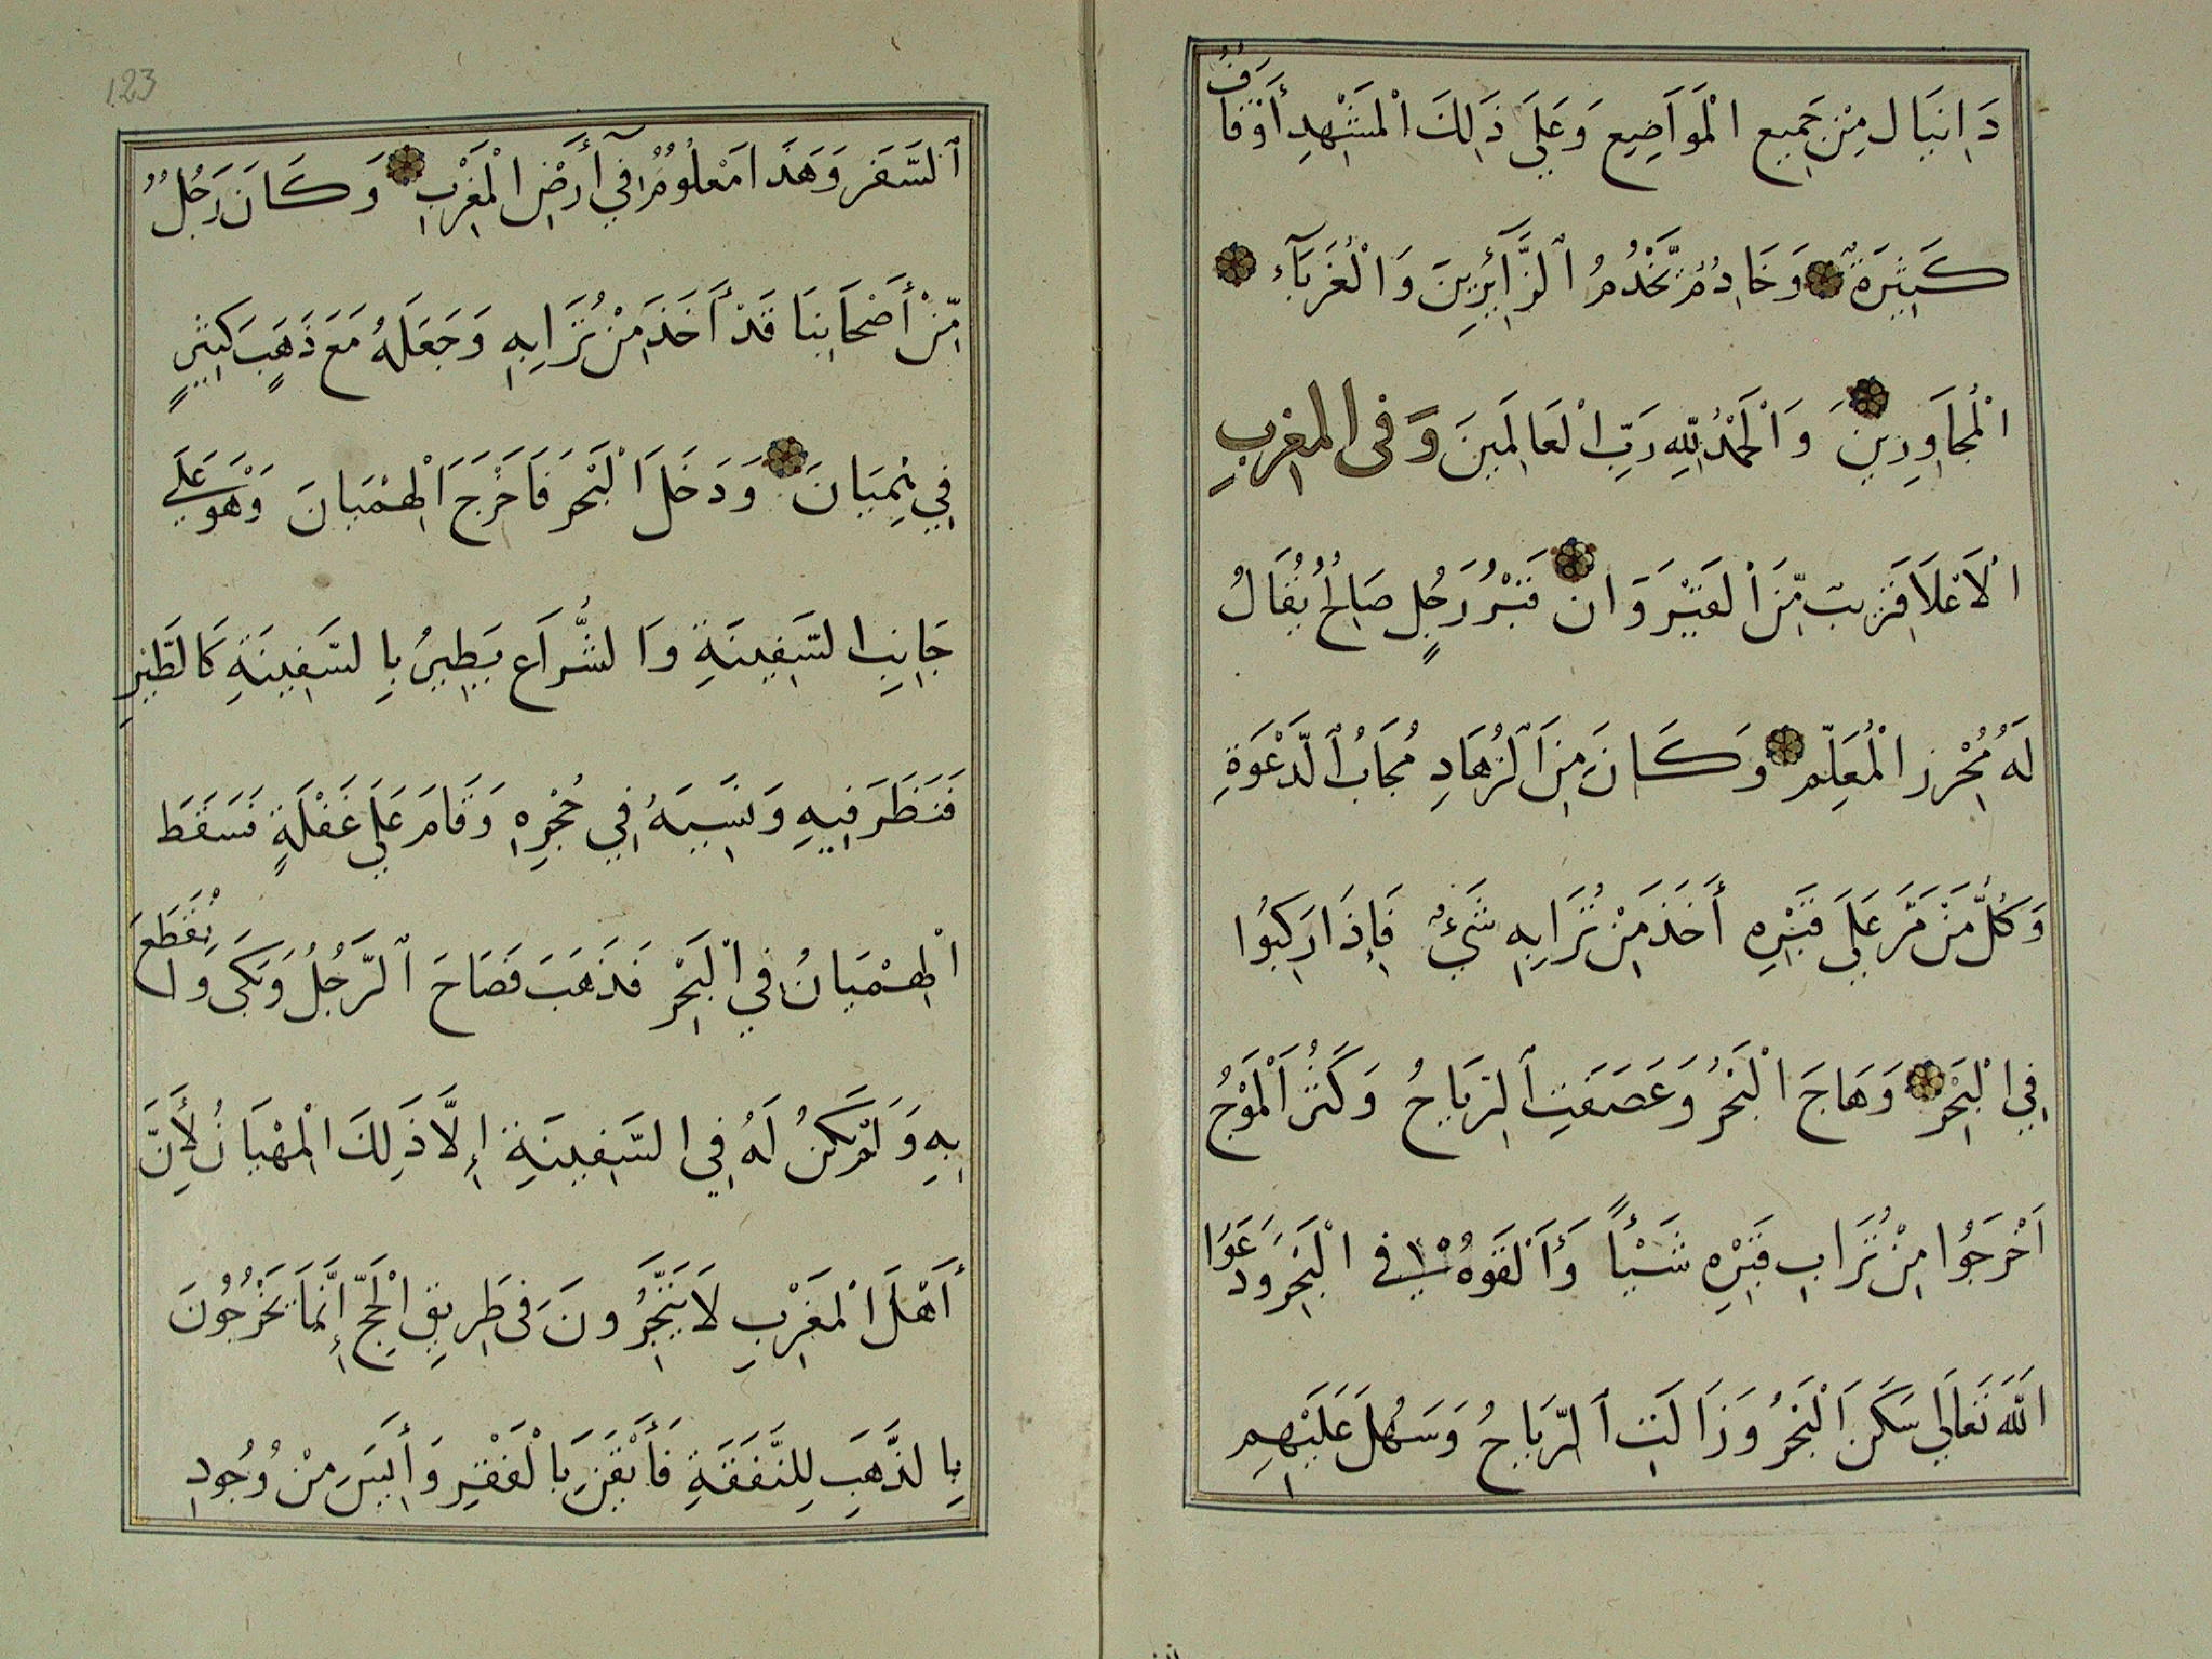 دَانِيَال مِنْ جَمِيعِ الْمَوَاضِيعِ وَعَلَي ذَلِكَ الْمَشْهِدِ أَوْقَافُ
كَثِيرَةٌ وَخَادِمٌ يَّخْدُمُ ٱلزَّآئِرِينَ وَالْغُرَبَآءِ
الْمُجَاوِرِينَ وَالْحَمْدُ لِلّهِ رَبِّ الْعَالَمِينَ وَفى المغربِ
الْاَعْلَا قَرِيبَ مِّنَ ٱلقَيْرَوَان قَبْرُ رَجُلٍ صَالِحٌ يُقَالُ
لَهُ مُحْرِز الْمُعَلِّم وَكَانَ مِنَ ٱلزُهَادِ مُجَابُ ٱلدَّعْوَةِ
وَكُلُّ مَنْ مَّرَ عَلَي قَبْرِهِ أَخَذَ مِنْ تُرَابِهِ شَيْءٌ فَإِذَا رَكِبُوا
فِي الْبَحْرِ وَهَاجَ الْبَحْرُ وَعَصَفَتِ ٱلرِّيَاحُ وَكَثُرَ الْمَوْجُ
اَخْرَجُوا مِنْ تُرَابِ قَبْرِهِ شَيْأً وَأَلْقَوهُ في الْبَحْرِ وَدَعَوُا
اللّٰهَ تَعَالَي سَكَنَ الْبَحْرُ وَزَالَتِ ٱلرِّيَاحُ وَسَهُلَ عَلَيْهِم
123
ٱلسَّفَر وَهَذَا مَعْلُومٌ فِي أَرْضِ الْمَغْرِبِ وَكَانَ رَجُلٌ
مِّنْ أَصْحَابِنَا قَدْ أَخَذَ مِنْ تُرَابِهِ وَجَعَلَهُ مَعَ ذَهَبٍ كَثِيرٍ
فِي هِمْيَانَ وَدَخَلَ الْبَحْرَ فَاَخْرَجَ الْهِمْيَانَ وَهُوَ عَلَي
جَانِبِ السَّفِينَةِ وَالشِّرَاع يَطِيرُ بِالسَّفِينَةِ كَالطَّيْرِ
فَنَظَرَ فِيهِ وَنَسِيَهُ فِي حُجْرِهِ وَقَامَ عَلَي غَفْلَةٍ فَسَقَطَ
الْهِمْيَانُ فِي الْبَحْرِ فَذَهَبَ فَصَاحَ ٱلرَّجُلُ وَبَكَي وَانْقَطَعَ
بِهِ وَلَمْ يَكُنْ لَهُ فِي السَّفِينَةِ إِلَّا ذَلِكَ الْمِهْيَانُ لِأَنَّ
أَهْلَ الْمَغْرِبِ لَا يَتَّجِرُونَ فى طَرِيقِ الْحَجِّ إِنَّمَا يَخْرُجُونَ
بِالذَّهَبِ لِلنَّفَقَةِ فَأَيْقَنَ بِالْفَقْرِ وَأَيِسَ مِنْ وُجُودِ